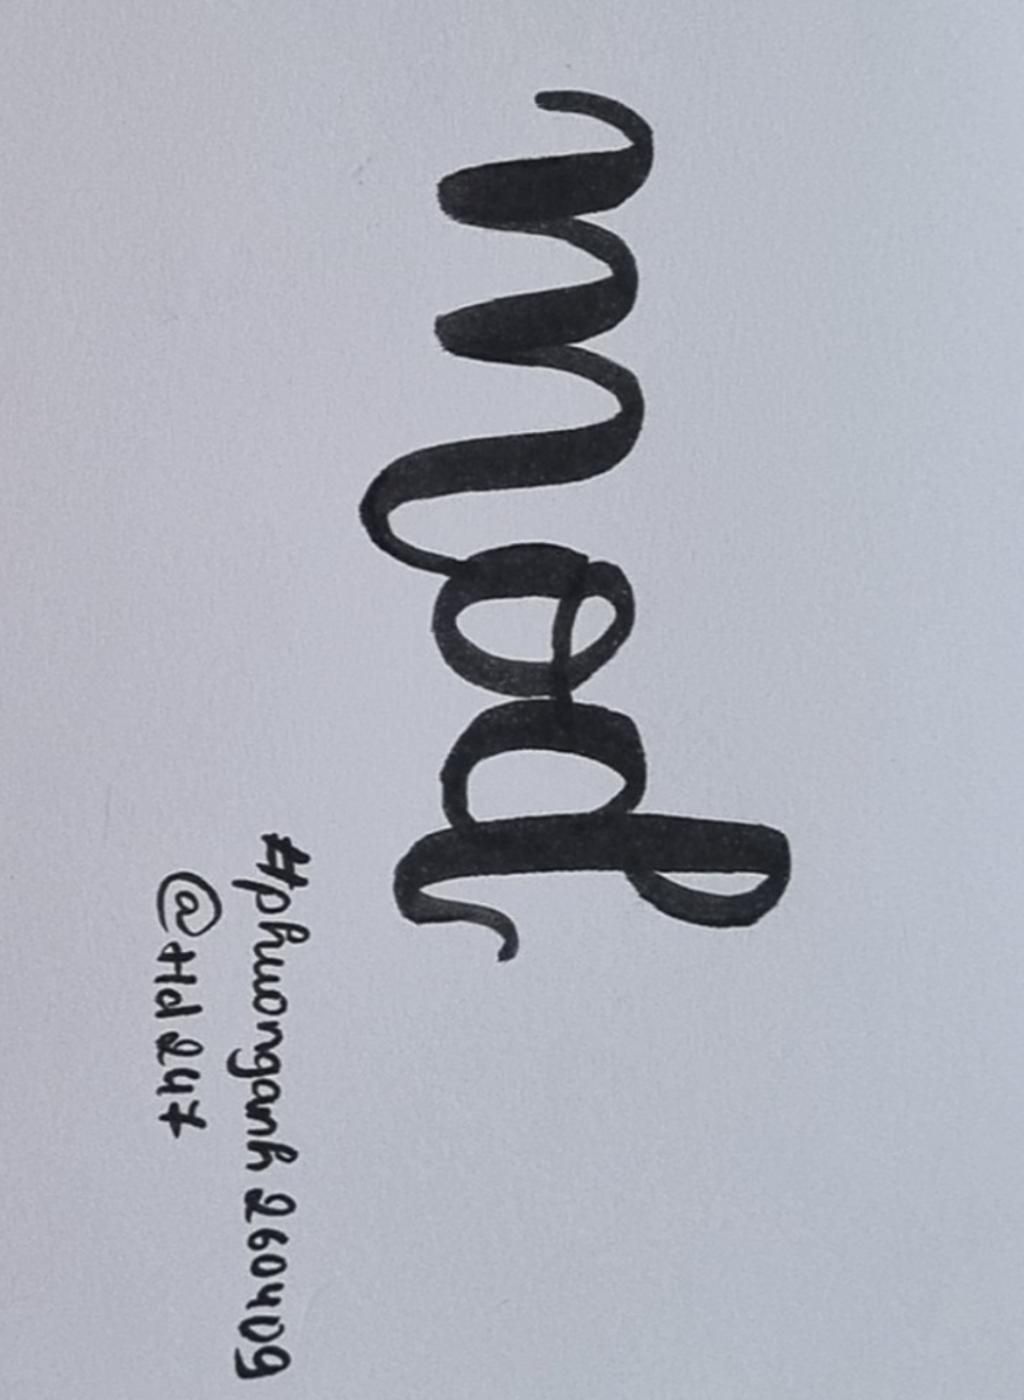 mod
#phuonganh260409
@Hd247